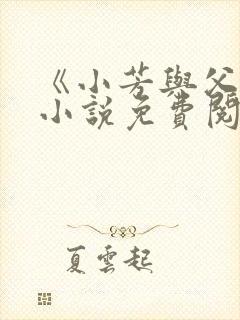 《小芳與父
小說免費閱
夏雲起